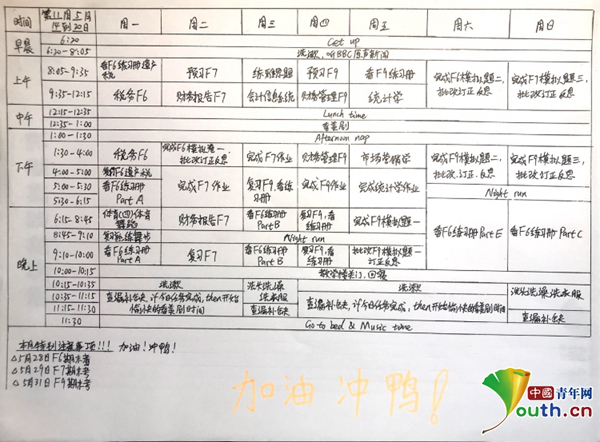 时间 第11周5月 周一 周二 周三 周四 周五 周六 周日
早晨 6:30 Get up
6:30-8:05 洗漱,听BBC原声新闻
上午 8:05-9:35 预习F7 预习F9 看F9练习册 完成F6模拟题二,批改订正反思 完成F9模拟题三,批改订正反思
9:35-12:15 税务F6 财务报告F7 会计信息系统 财务管理F9 统计学
中午 12:15-12:35 Lunch time
12:35-1:00 看美剧
下午 1:00-1:30 Afternoon nap
1:30-4:00 税务F6 完成F6模拟卷一,批改订正反思 完成F7作业 财务管理F9 市场营销学 完成F7模拟题二,批改订正反思 完成F7模拟题三,批改订正反思
4:00-5:00
5:00-5:30 看F6练习册 完成F7作业 复习F9,看练习册 完成F9作业 完成统计学作业
5:30-6:15 Part A Night run
晚上 6:15-8:45 财务报告F7 看F6练习册 Part B 复习F9,看练习册 完成F9模拟题一 看F6练习册Part E 看F6练习册Part C
8:45-9:10 Night run
9:10-10:00 看F6练习册 Part A 复习F7 看F6练习册 Part B 复习F9,看练习册 批改F9模拟题一订正反思
10:00-10:15
10:15-10:35 洗漱 洗漱
10:35-11:15 查漏补缺,if今日任务完成,then开始愉快的看美剧时间 查漏补缺,if今日任务完成,then开始愉快的看美剧时间
11:15-11:30 查漏补缺 查漏补缺
11:30 Go to bed & Music time
本月特别注意事项!!! 加油!冲鸭!
△5月28日F6期末考
△5月29日F7期末考
△5月31日F9期末考
加油冲鸭!
中國青年网
Youth.cn